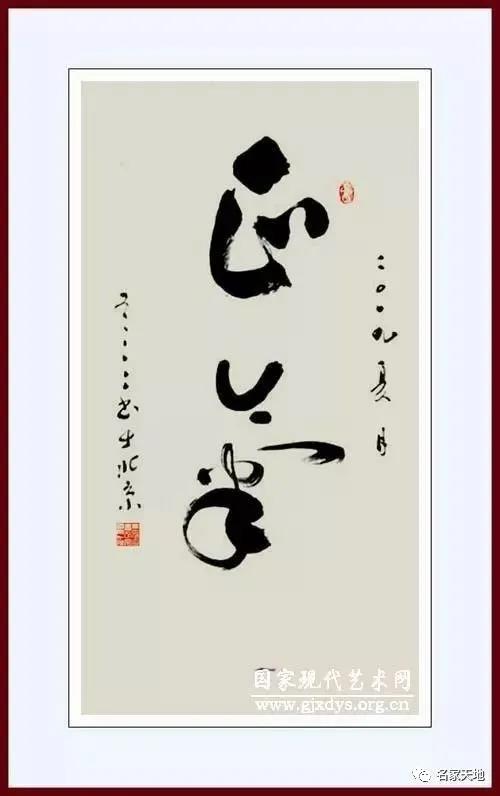 正气
二〇〇九夏月
书于北京
国家现代艺术网
www.gjxdys.org.cn
名家天地